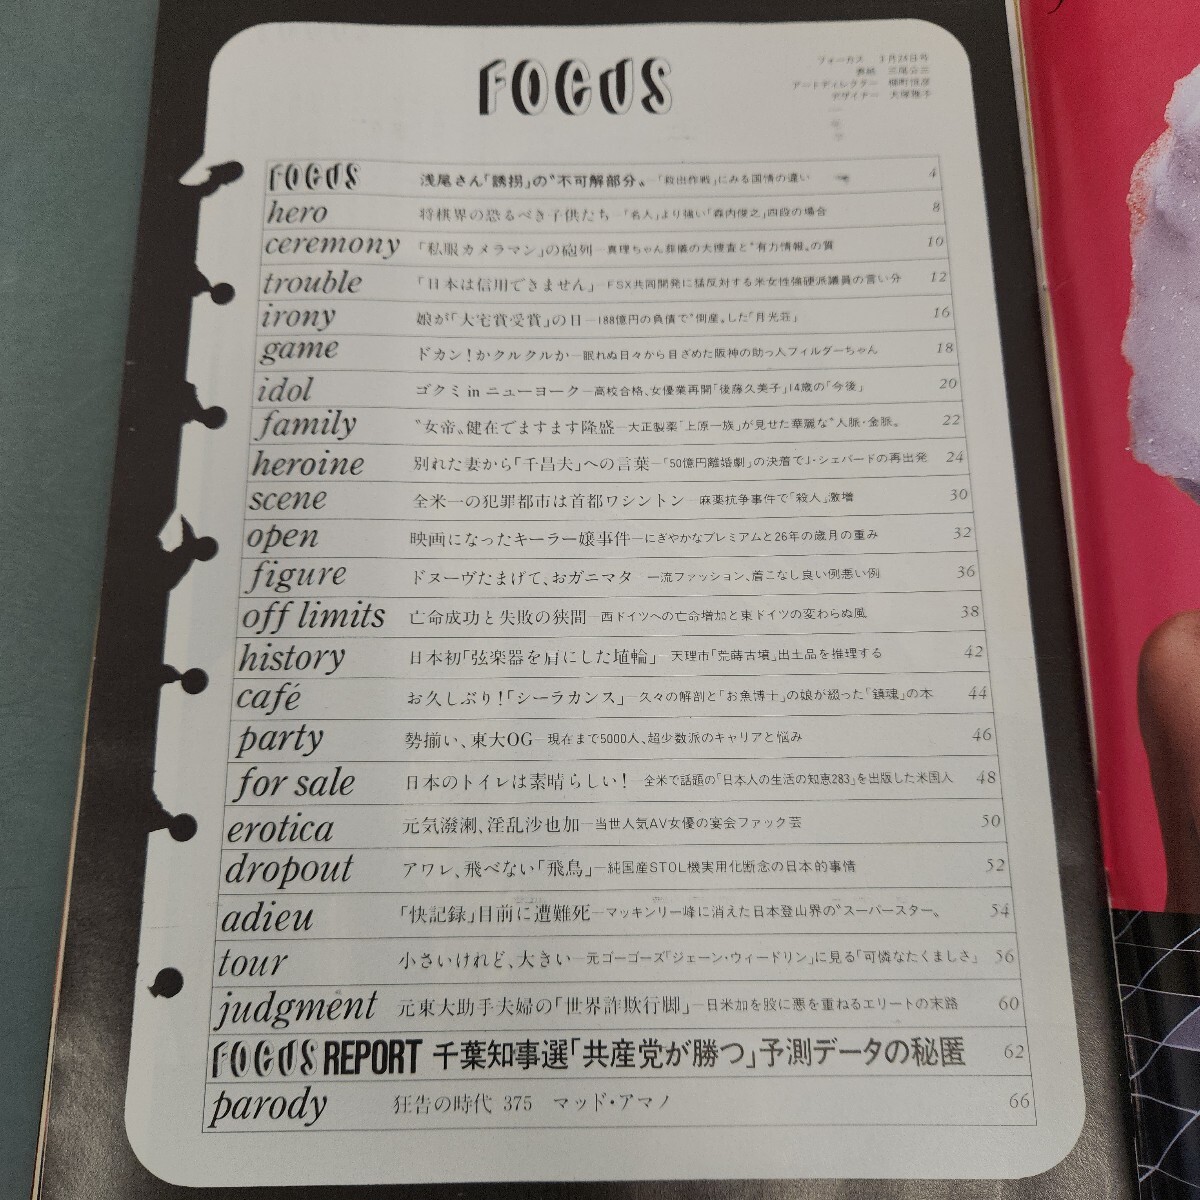 FOCUS
フォーカス 3月24日号
表紙 三尾公三
アートディレクター
デザイナー
FOCUS 浅尾さん「誘拐」の〝不可解部分〟―「救出作戦」にみる国情の違い 4
hero 将棋界の恐るべき子供たち―「名人」より強い「森内俊之」四段の場合 8
ceremony 「私服カメラマン」の砲列―真理ちゃん葬儀の大捜査と〝有力情報〟の質 10
trouble 「日本は信用できません」―FSX共同開発に猛反対する米女性強硬派議員の言い分 12
irony 娘が「大宅賞受賞」の日―188億円の負債で〝倒産〟した「月光荘」 16
game ドカン!かクルクルか―眠れぬ日々から目ざめた阪神の助っ人フィルダーちゃん 18
idol ゴクミ in ニューヨーク―高校合格、女優業再開「後藤久美子」14歳の「今後」 20
family 〝女帝〟健在でますます隆盛―大正製薬「上原一族」が見せた華麗な〝人脈・金脈〟 22
heroine 別れた妻から「千昌夫」への言葉―「50億円離婚劇」の決着でJ・シェパードの再出発 24
scene 全米一の犯罪都市は首都ワシントン―麻薬抗争事件で「殺人」激増 30
open 映画になったキーラー嬢事件―にぎやかなプレミアムと26年の歳月の重み 32
figure ドヌーヴたまげて、おガニマタ―一流ファッション、着こなし良い例悪い例 36
off limits 亡命成功と失敗の狭間―西ドイツへの亡命増加と東ドイツの変わらぬ風 38
history 日本初「弦楽器を肩にした埴輪」―天理市「荒蒔古墳」出土品を推理する 42
café お久しぶり!「シーラカンス」―久々の解剖と「お魚博士」の娘が綴った「鎮魂」の本 44
party 勢揃い、東大OG―現在まで5000人、超少数派のキャリアと悩み 46
for sale 日本のトイレは素晴らしい!―全米で話題の「日本人の生活の知恵283」を出版した米国人 48
erotica 元気潑溂、淫乱沙也加―当世人気AV女優の宴会ファック芸 50
dropout アワレ、飛べない「飛鳥」―純国産STOL機実用化断念の日本的事情 52
adieu 「快記録」目前に遭難死―マッキンリー峰に消えた日本登山界の〝スーパースター〟 54
tour 小さいけれど、大きい―元ゴーゴーズ「ジェーン・ウィードリン」に見る「可憐なたくましさ」 56
judgment 元東大助手夫婦の「世界詐欺行脚」―日米加を股に悪を重ねるエリートの末路 60
FOCUS REPORT 千葉知事選「共産党が勝つ」予測データの秘匿 62
parody 狂告の時代 375 マッド・アマノ 66